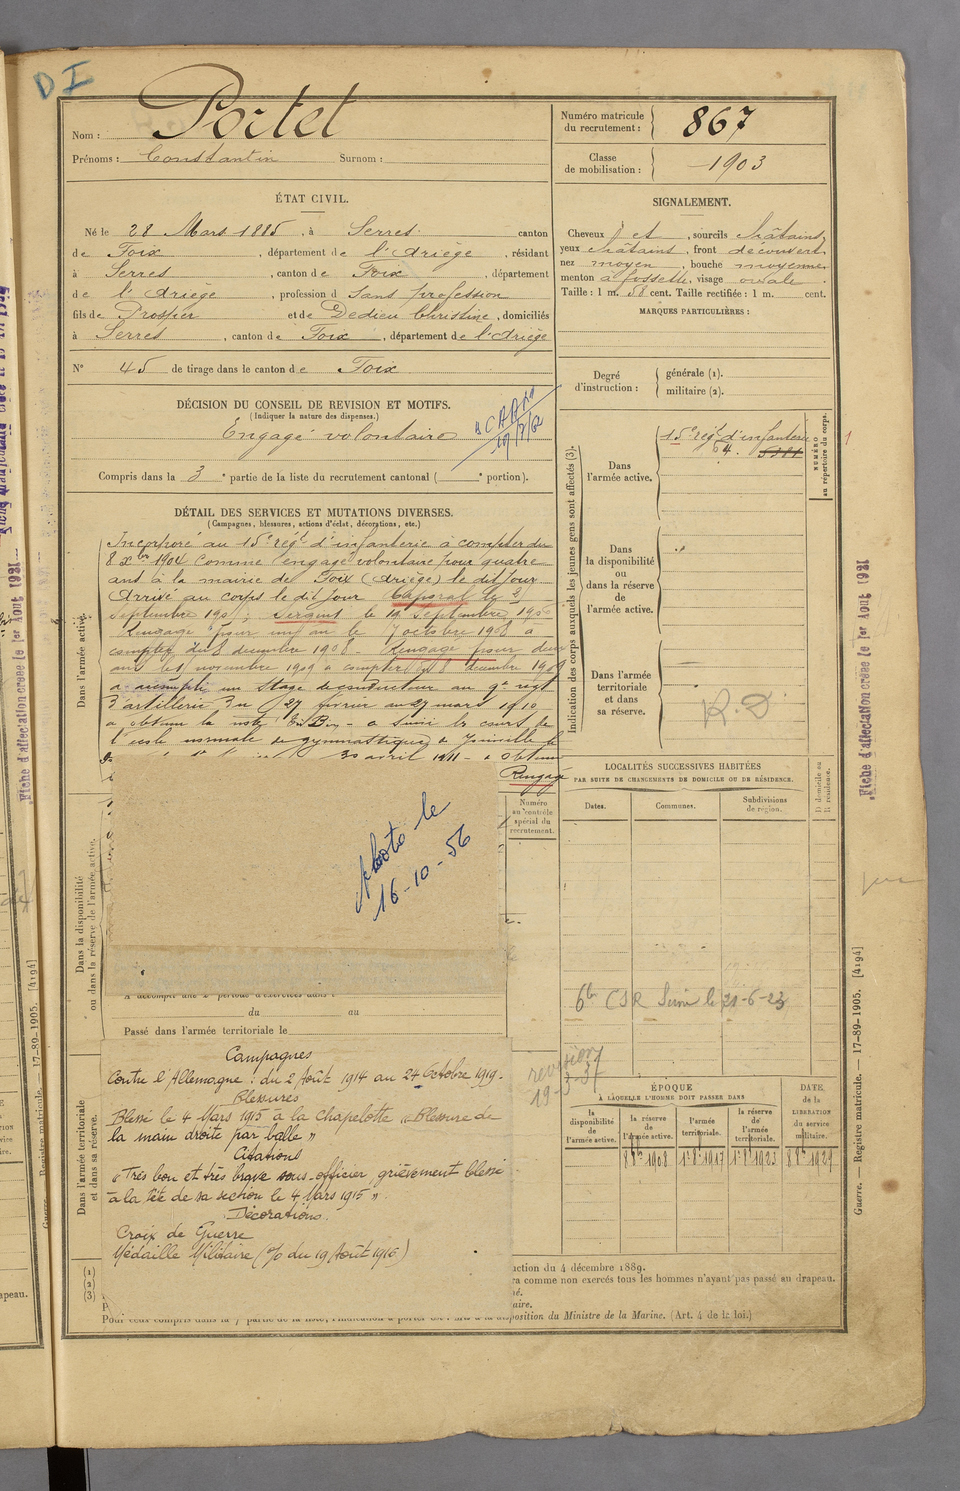 D I
Nom : Portet
Prénoms : Constantin Surnom :
Numéro matricule
du recrutement : 867
Classe
de mobilisation : 1903
ÉTAT CIVIL.
Né le 28 Mars 1885, à Serres canton
de Foix, département de l'Ariège, résidant
à Serres, canton de Foix, département
de l'Ariège, profession d Sans profession
fils de Prosper et de Dedieu Christine, domiciliés
à Serres, canton de Foix, département de l'Ariège
N° 45 de tirage dans le canton de Foix
SIGNALEMENT.
Cheveux et, sourcils châtains
yeux châtains, front découvert
nez moyen, bouche moyenne
menton à fossette, visage ovale.
Taille : 1 m. 58 cent. Taille rectifiée : 1 m. cent.
MARQUES PARTICULIÈRES :
Degré
d'instruction :
générale (1).
militaire (2).
DÉCISION DU CONSEIL DE REVISION ET MOTIFS.
(Indiquer la nature des dispenses.)
Engagé volontaire
Compris dans la 3e partie de la liste du recrutement cantonal ( e portion).
DÉTAIL DES SERVICES ET MUTATIONS DIVERSES.
(Campagnes, blessures, actions d'éclat, décorations, etc.)
Incorporé au 15e régt d'infanterie à compter du
8 Xbre 1904 comme engagé volontaire pour quatre
ans à la mairie de Foix (Ariège) le dit jour
Arrivé au corps le dit jour Caporal le
Septembre 190 ; Sergent le 19 Septembre
Rengagé pour un an le 7 octobre 1908 à
compter du 8 décembre 1908 - Rengagé pour deux
ans novembre 1909 à compter du 8 décembre 1909
a accompli un stage de conducteur au 9e régt
d'artillerie du 27 février au 27 mars 1910
a obtenu la note Bien - a suivi les cours de
l'école normale de gymnastique de Joinville le
30 avril 1911 - a obtenu
Rengagé
Dans l'armée active.
Dans la disponibilité
ou dans la réserve de l'armée active.
Dans l'armée territoriale
et dans sa réserve.
Indication des corps auxquels les jeunes gens sont affectés (3).
Dans
l'armée active.
15e régt d'infanterie
64.
NUMÉRO
au répertoire du corps.
1
Dans
la disponibilité
ou
dans la réserve
de
l'armée active.
Dans l'armée
territoriale
et dans
sa réserve.
R.D
LOCALITÉS SUCCESSIVES HABITÉES
PAR SUITE DE CHANGEMENTS DE DOMICILE OU DE RÉSIDENCE.
Dates. Communes. Subdivisions
de région.
D domicile ou
R résidence.
Numéro
au contrôle
spécial du
recrutement.
photo le
16-10-56
du au
Passé dans l'armée territoriale le
CSR le 21-6-23
revision
19-3-37
Campagnes
Contre l'Allemagne : du 2 Août 1914 au 24 Octobre 1919.
Blessures
Blessé le 4 Mars 1915 à la Chapelotte « Blessure de
la main droite par balle »
Citations
« Très bon et très brave sous-officier, grièvement blessé
à la tête de sa section le 4 Mars 1915 ».
Décorations
Croix de Guerre
Médaille Militaire (J/O du 19 Août 1916)
ÉPOQUE
À LAQUELLE L'HOMME DOIT PASSER DANS
la
disponibilité
de
l'armée active.
la réserve
de
l'armée active.
l'armée
territoriale.
la réserve
de
l'armée
territoriale.
DATE
de la
LIBÉRATION
du service
militaire.
8 Xbre 1908 1er 8bre 1917 1er 8bre 1923 8 Xbre 1929
(1)
(2)
(3)
uction du 4 décembre 1889.
ra comme non exercés tous les hommes n'ayant pas passé au drapeau.
position du Ministre de la Marine. (Art. 4 de la loi.)
Fiche d'affectation créée le 1er Août 1921
Fiche d'affectation créée le 1er Août 1921
Guerre. — Registre matricule. — 17-89-1905. [4194]
Registre matricule. — 17-89-1905. [4194]